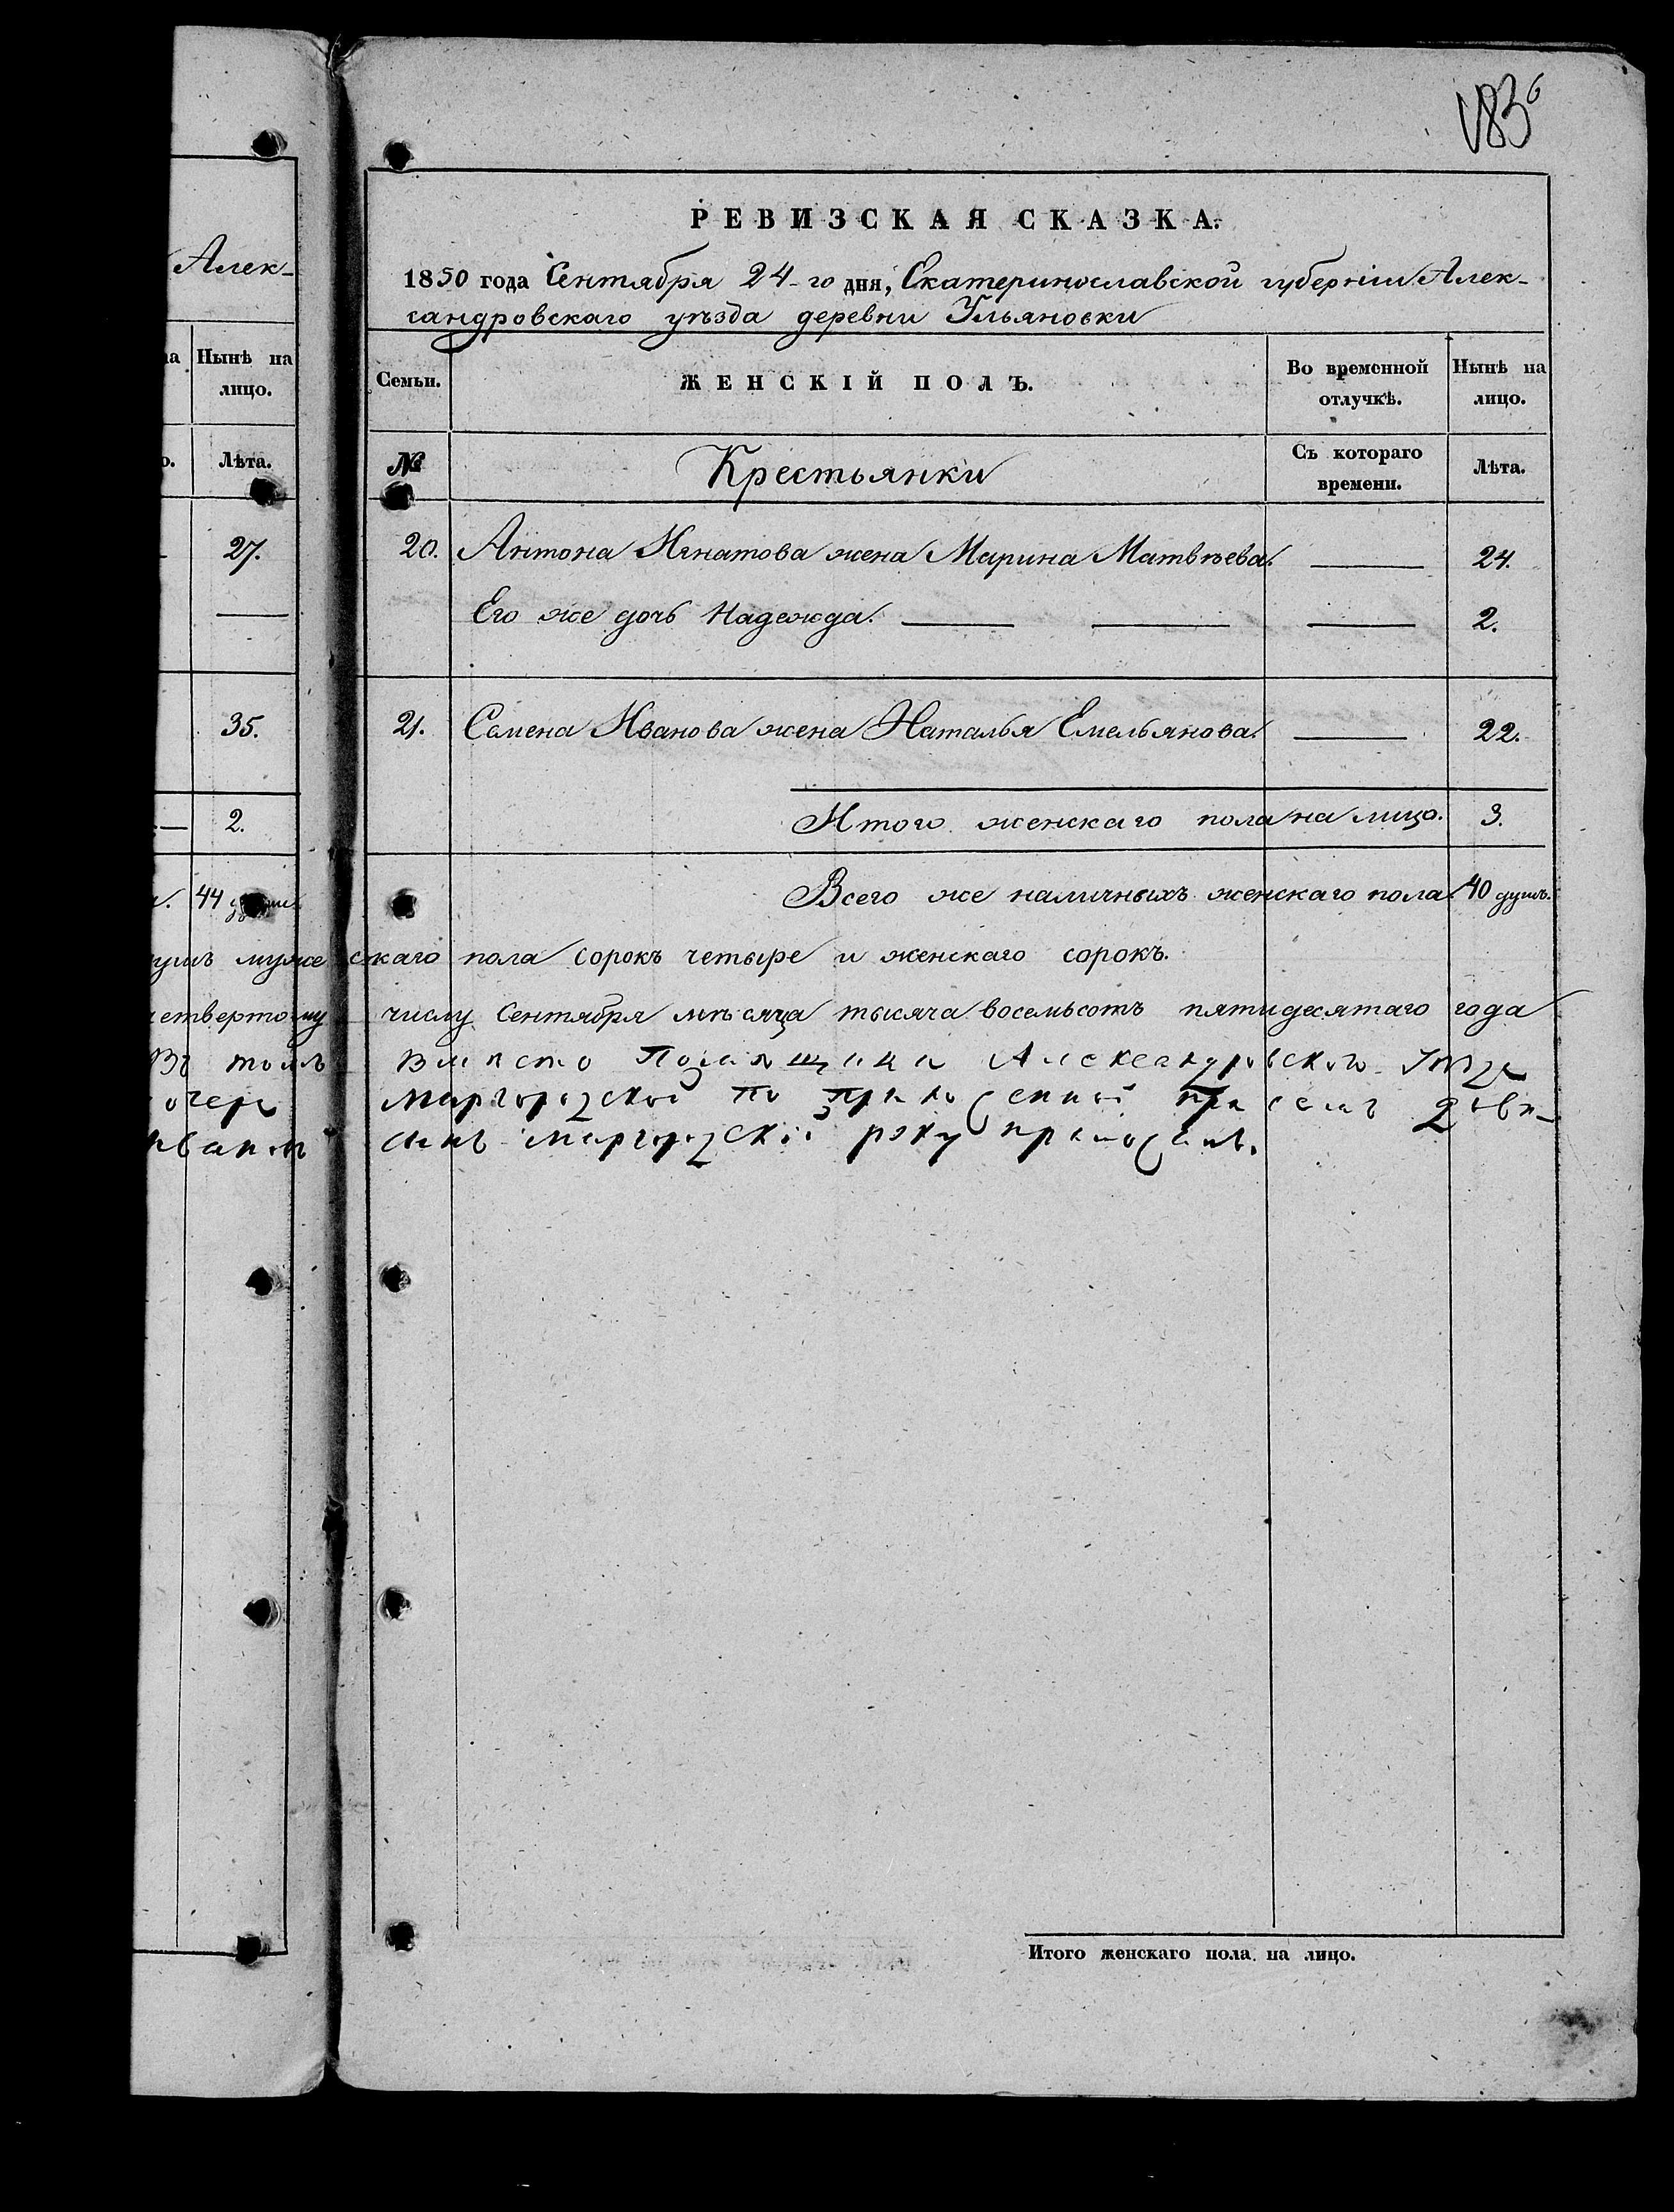 183
Алек-
РЕВИЗСКАЯ СКАЗКА.
1850 года Сентября 24-го дня, Екатеринославской губерніи Алек-
сандровскаго уѣзда деревни Ульяновки
Нынѣ на лицо.
Лѣта.
Семьи.
ЖЕНСКІЙ ПОЛЪ.
Во временной отлучкѣ.
Нынѣ на лицо.
№
Крестьянки
Съ котораго времени.
Лѣта.
27.
20. Антона Игнатова жена Марина Матвѣева. — 24.
Его же дочь Надежда. — — — 2.
35.
21. Семена Иванова жена Наталья Емельянова. — 22.
2.
Итого женскаго пола на лицо. 3.
44
Всего же наличныхъ женскаго пола. 40 душъ.
муже скаго пола сорокъ четыре и женскаго сорокъ.
четвертому числу Сентября мѣсяца тысяча восемьсотъ пятидесятаго года
Въ томъ вмѣсто Помѣщицы Александровского
Миргородской по
Миргородскій руку приложилъ.
Итого женскаго пола на лицо.